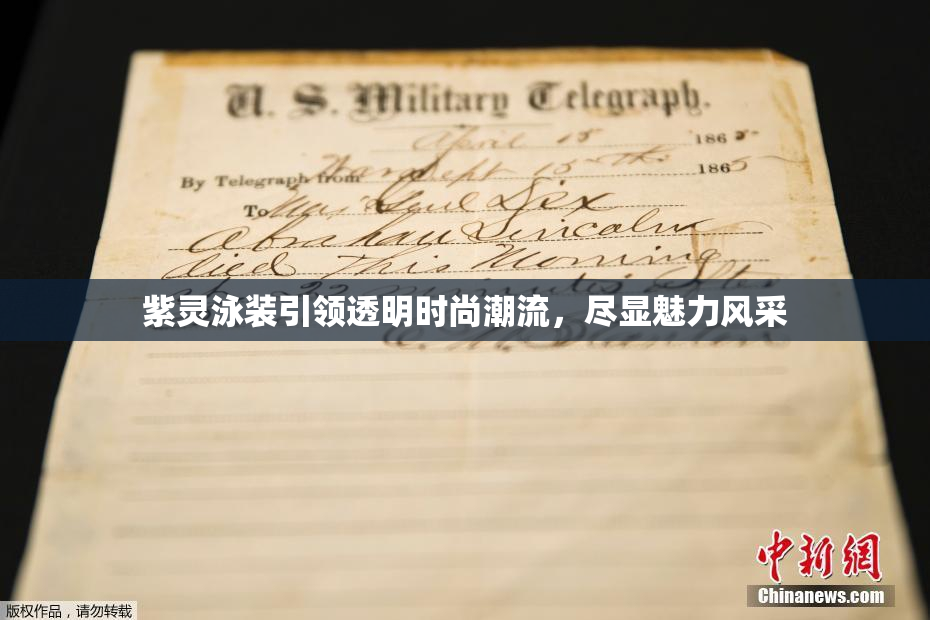 U. S. Military Telegraph.
April 15 1865
By Telegraph from War Dept 15th 1865
To Maj Genl Dix
Abraham Lincoln
died This Morning
22 minutes after
紫灵泳装引领透明时尚潮流，尽显魅力风采
E. M. Stanton
中新網
Chinanews.com
版权作品，请勿转载